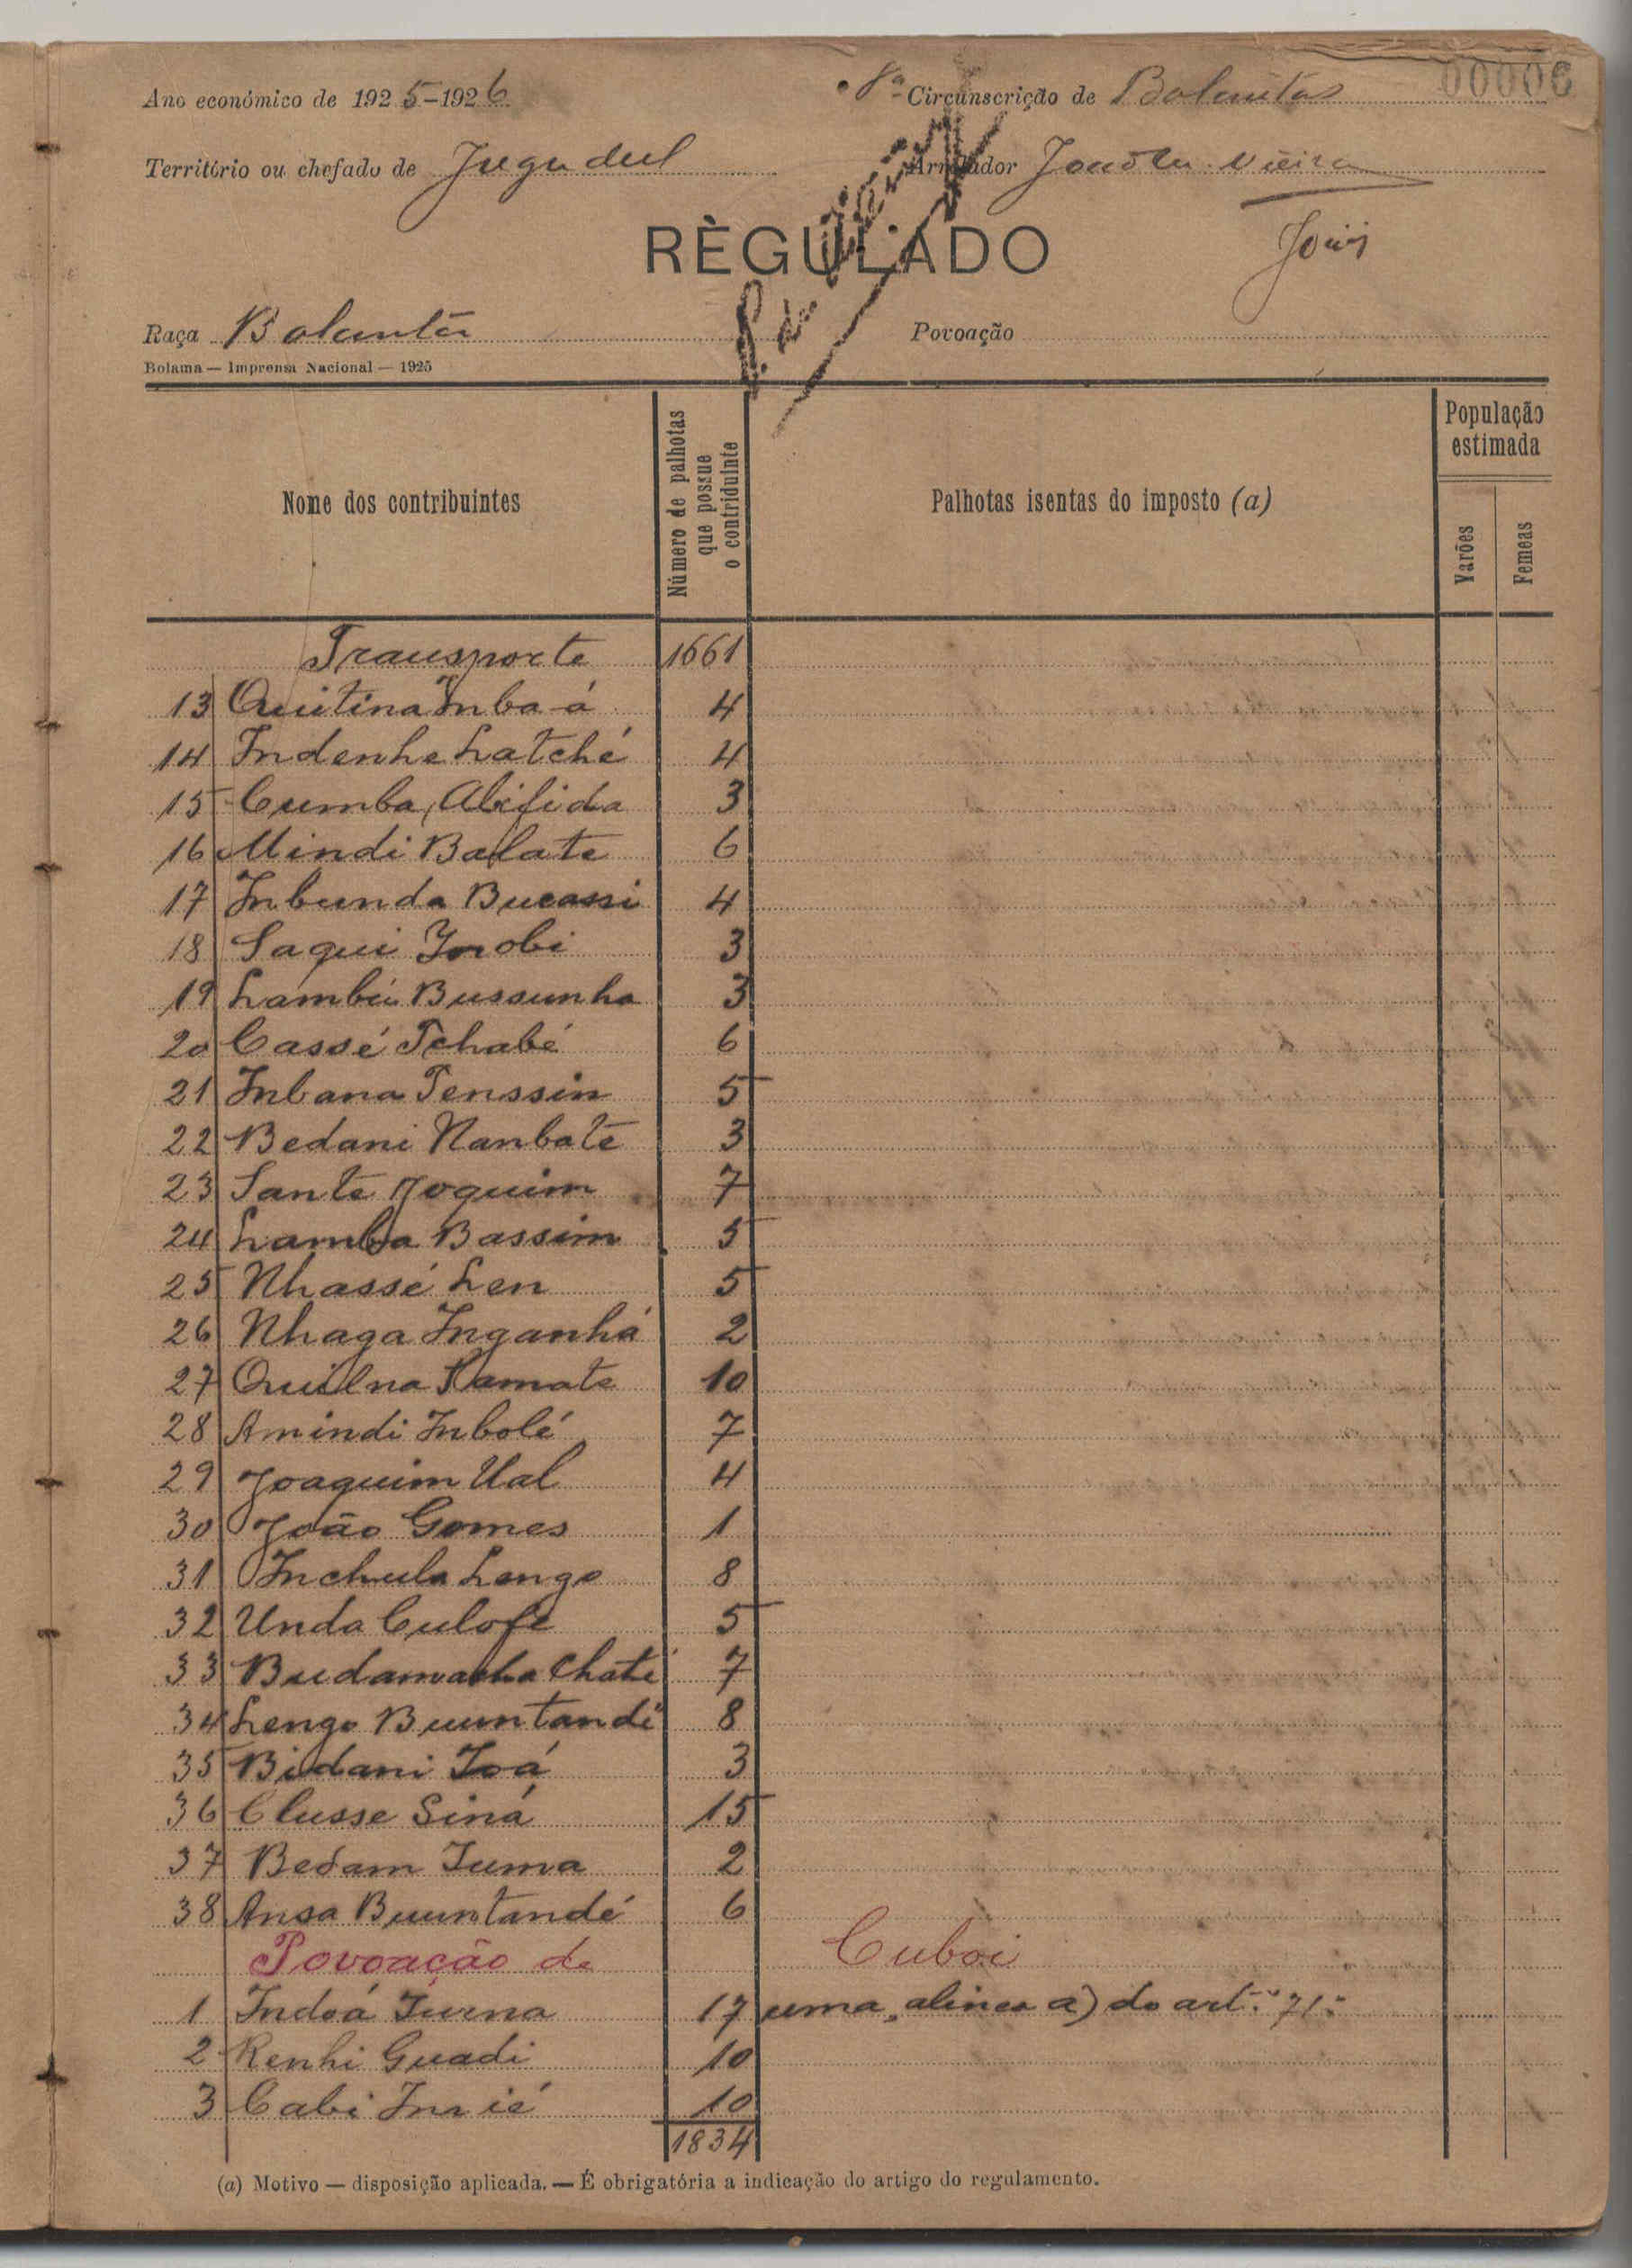 00006
Ano económico de 1925-1926 8ª Circunscrição de Balantas
Território ou chefado de Jugudul Arrolador Vieira
RÈGULADO
Raça Balanta Povoação
Bolama — Imprensa Nacional — 1925
Nome dos contribuintes
Número de palhotas que possue o contriduinte
Palhotas isentas do imposto (a)
População estimada
Varões
Femeas
Transporte 1661
13 Quitina Inba-á 4
14 Indenhe Latché 4
15 Cumba Abifida 3
16 Mindi Balate 6
17 Inbunda Bucassi 4
18 Saqui Inobi 3
19 Lambú Bussunha 3
20 Cassé Tchabé 6
21 Inbana Tenssin 5
22 Bedani Nanbate 3
23 Sante Joquim 7
24 Lamba Bassim 5
25 Nhassé Len 5
26 Nhaga Inganhá 2
27 Quilna Ramate 10
28 Amindi Inbolé 7
29 Joaquim Ual 4
30 João Gomes 1
31 Inchula Lengo 8
32 Unda Culofé 5
33 Chaté 7
34 Lengo Buuntandé 8
35 Bidani Ioá 3
36 Clusse Siná 15
37 Bedam Iuma 2
38 Ansa Buuntandé 6
Povoação de Cuboi
1 Indoá Iurna 17 uma, alinea a) do artº 71º
2 Renhi Guadi 10
3 Cabi 10
1834
(a) Motivo — disposição aplicada. — É obrigatória a indicação do artigo do regulamento.